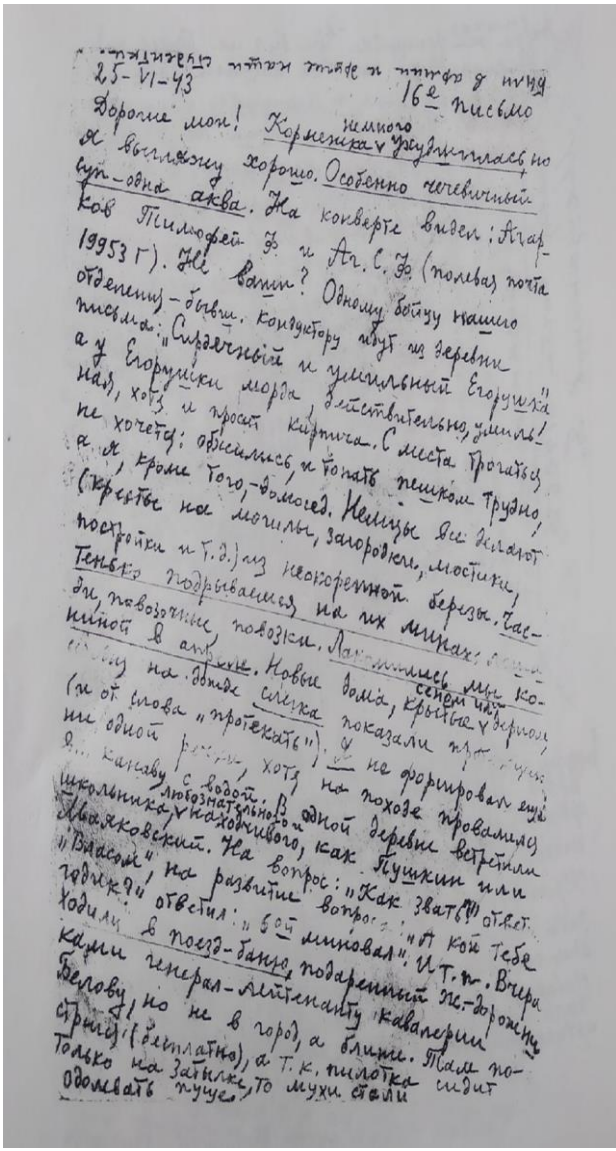 были в армии и другие наши студентки.
25-VI-43
16е письмо
Дорогие мои! Кормежка немного ухудшилась, но
я выгляжу хорошо. Особенно чечевичный
суп-одна аква. На конверте видел: Агар-
ков Тимофей Ф. и Аг. С. Ф. (полевая почта
19953 Г). Не ваши? Одному бойцу нашего
отделения-бывш. кондуктору идут из деревни
письма: „Сирдечный и умильный Егорушка"
а у Егорушки морда, действительно, умиль-
ная, хотя и просит кирпича. С места трогаться
не хочется: обжились, и топать пешком трудно,
а я, кроме того,-домосед. Немцы все делают
(кресты на могилы, загородки, мостики,
постройки и т.д.) из неокоренной березы. Час-
тенько подрываемся на их минах:
ди, повозочные, повозки. Лакомились мы ко-
ниной в апреле. Новые дома, крытые сеном или дерном,
на дожде слегка показали
(и от слова „протекать"). Я не форсировал еще
ни одной реки, хотя на походе провалился
в... канаву с водой. В одной деревне встретили
школьника, любознательного и находчивого, как Пушкин или
Маяковский. На вопрос: „Как звать?" ответ
„Власом", на развитие вопроса: „А кой тебе
годик?" ответил: „6ой миновал". И т.п. Вчера
ходили в поезд-баню, подаренный ж-дорожни
ками генерал-лейтенанту кавалерии
Белову, но не в город, а ближе. Там по-
стригся (бесплатно), а т.к. пилотка сидит
только на затылке, то мухи стали
одолевать пуще.